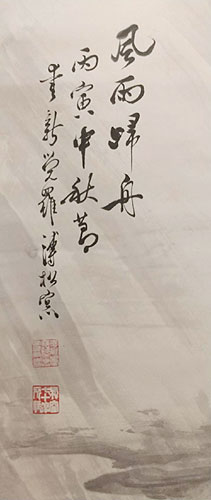 風雨歸舟
丙寅中秋節
爱新觉羅溥松窗